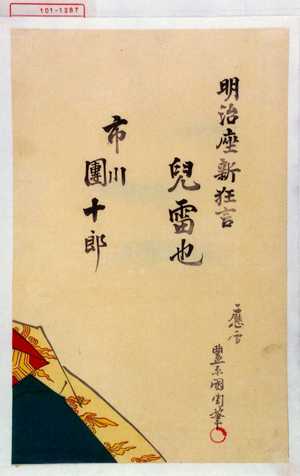 101-1387
明治座新狂言
兒雷也
市川
團十郎
應需
豊原國周筆